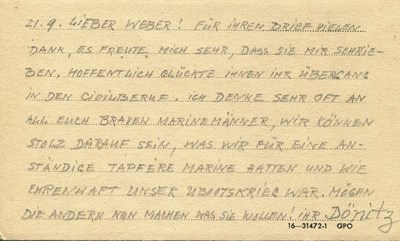 21.9. LIEBER WEBER! FÜR IHREN BRIEF VIELEN
DANK, ES FREUTE MICH SEHR, DASS SIE MIR SCHRIE-
BEN, HOFFENTLICH GLÜCKTE IHNEN IHR ÜBERGANG
IN DEN CIVILBERUF. ICH DENKE SEHR OFT AN
ALL EUCH BRAVEN MARINEMÄNNER, WIR KÖNNEN
STOLZ DARAUF SEIN, WAS WIR FÜR EINE AN-
STÄNDIGE TAPFERE MARINE HATTEN UND WIE
EHRENHAFT UNSER UBOOTSKRIEG WAR. MÖGEN
DIE ANDERN NUN MACHEN WAS SIE WOLLEN! IHR DÖNITZ
16—31472-1 GPO